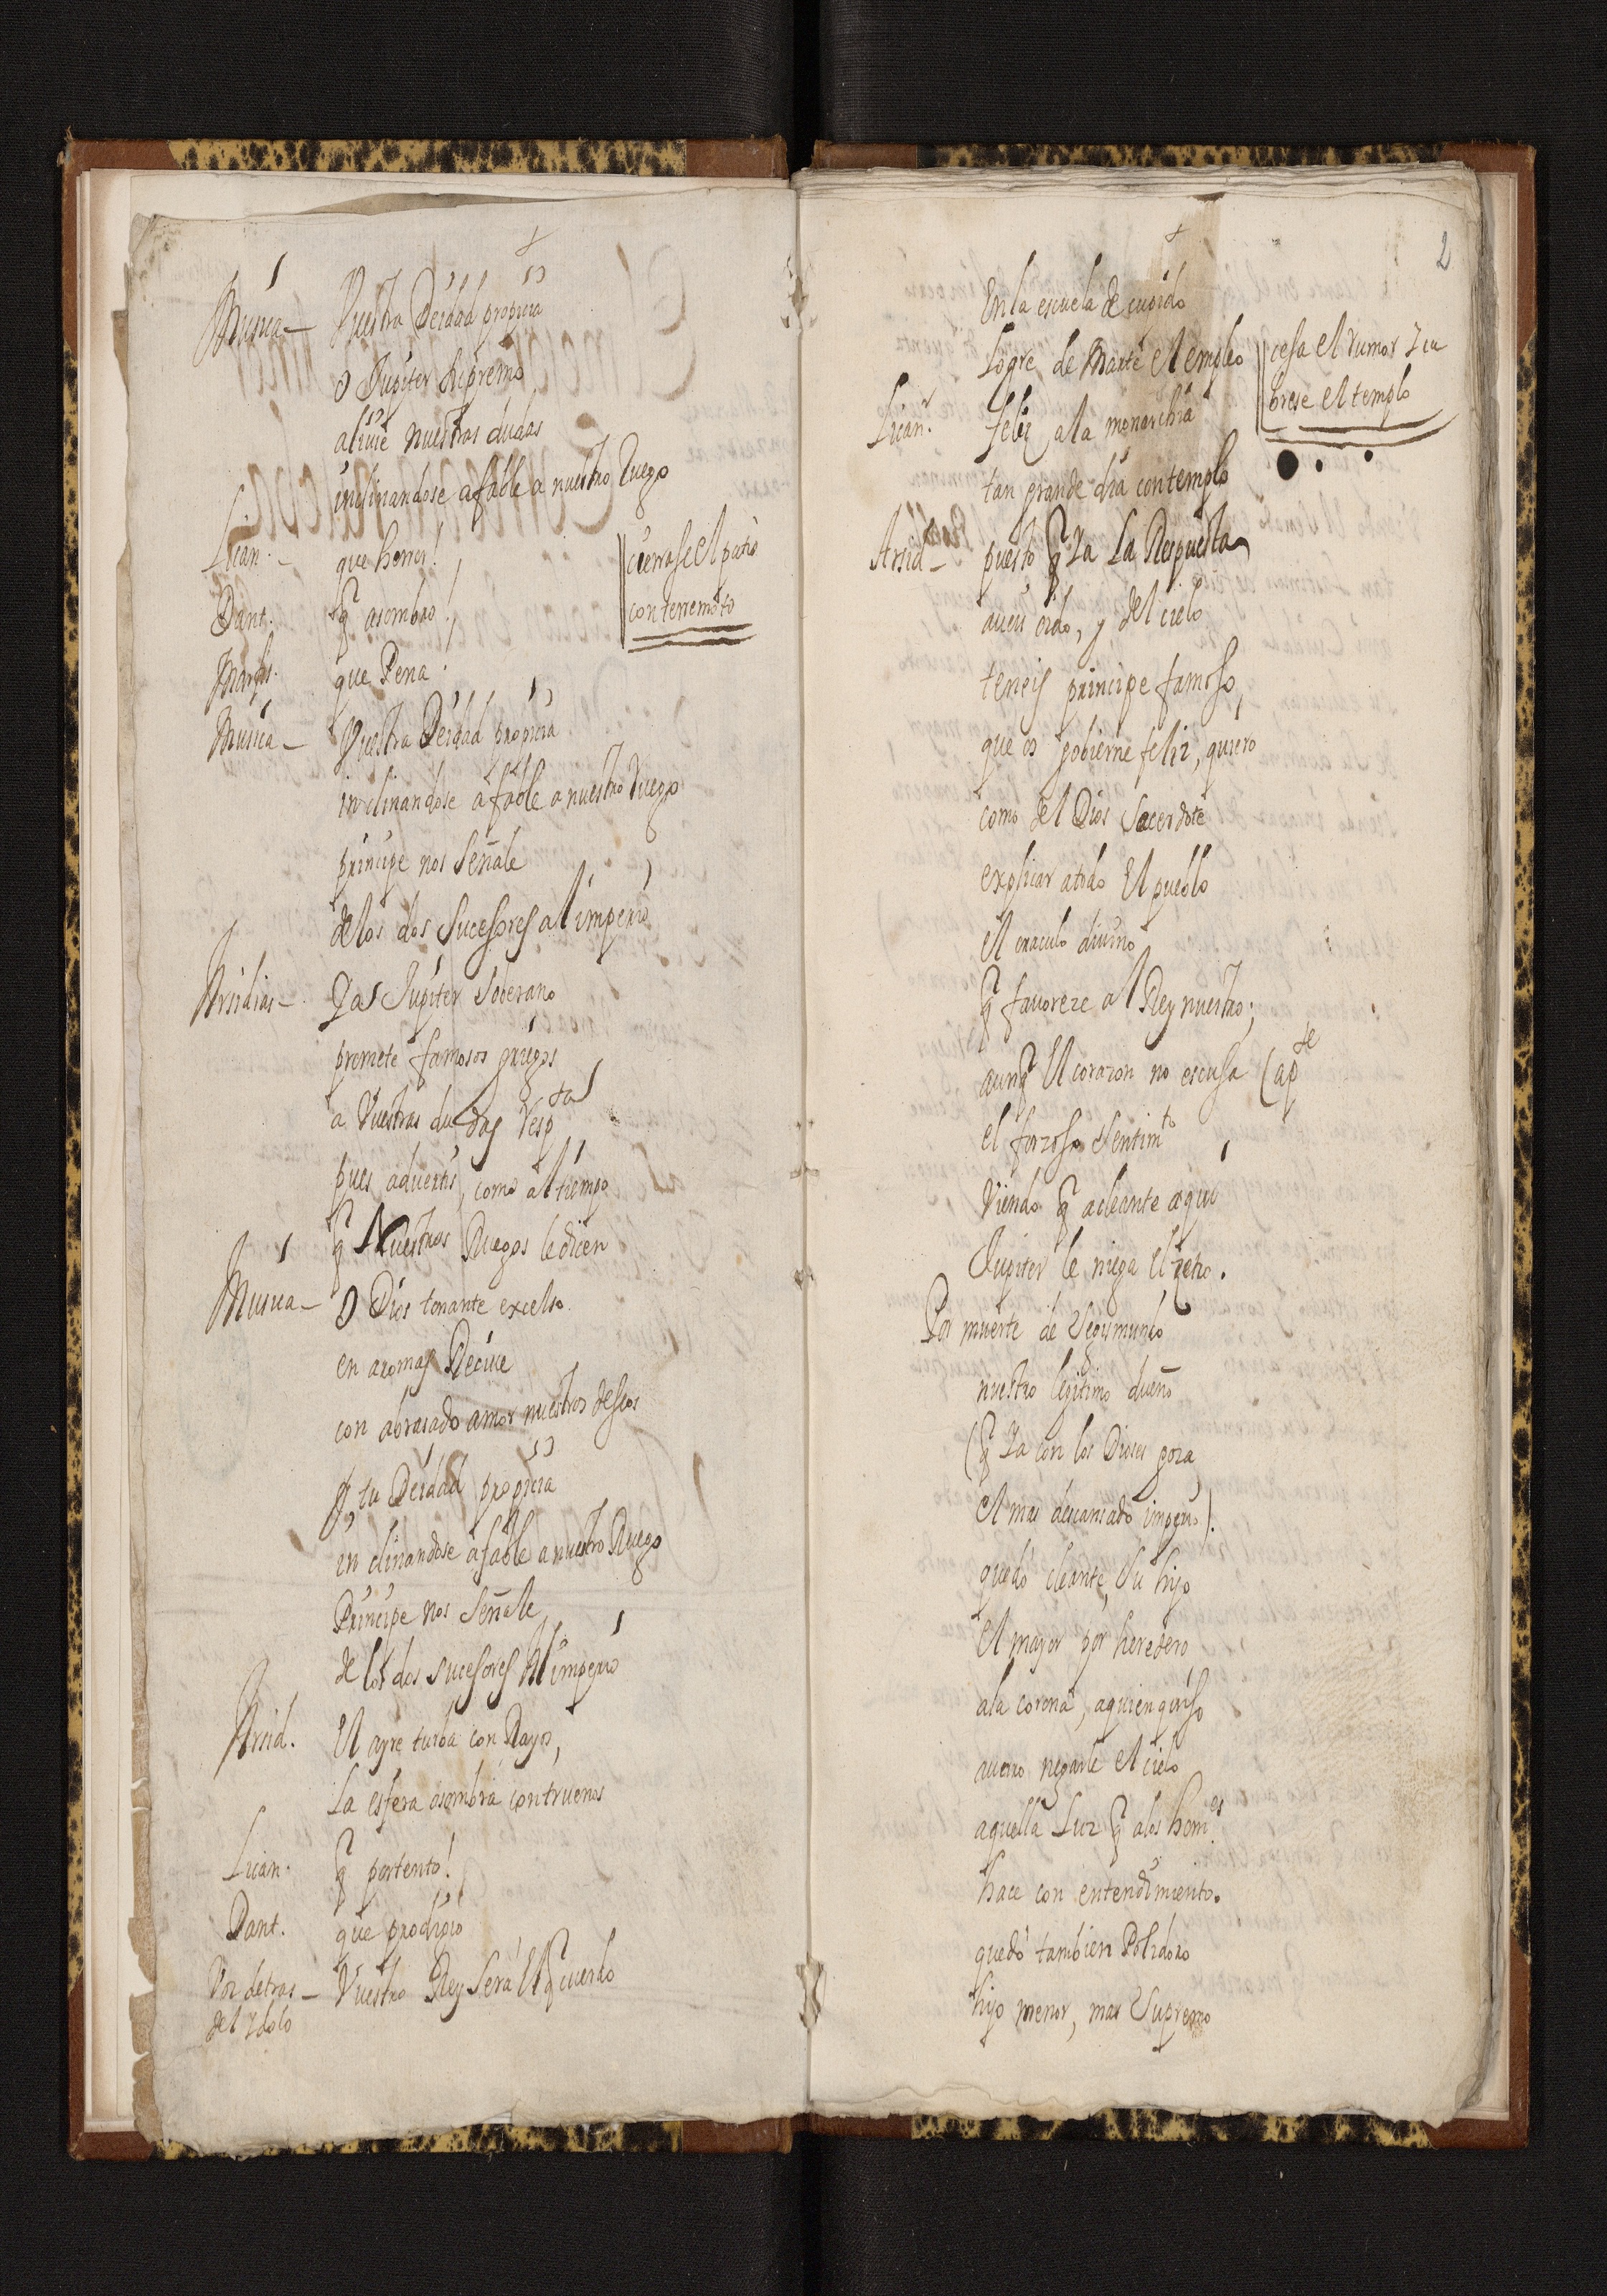 +
Musica — Vuestra Deidad propicia
o Jupiter supremo
aliuie nuestras dudas
inclinandose afable a nuestro Ruego
Lican. — que horror!
cierrase el patio
Dant. q̃ asombro!
con terremoto
Margs. que Pena.
Musica — Vuestra Deidad propicia
inclinandose afable a nuestro Ruego
principe nos señale
delos dos sucesores al imperio
Arsidias — Ya Jupiter soberano
promete famosos griegos
a Vuestras dudas Resp^ta
pues aduertis, como al tiempo
q̃ Nuestros Ruegos le dicen
Musica — O Dios tonante excelso.
en aromas Reciue
con abrasado amor nuestros deseos
y tu Deidad propicia
in clinandose afable a nuestro Ruego
Principe nos señale
de los dos sucesores Al imperio
Arsid. El ayre turba con Rayos,
La esfera asombra con truenos
Lican. q̃ portento!
Dant. que prodigio
Voz detras — Vuestro Rey será El q̃ cuerdo
del Ydolo
+
2
En la escuela de cupido
Logre de Marte el empleo
cesa el rumor Y cu
brese el templo
Lican^r. feliz ala monarchia
tan grande dia contemplo
Arsid — puesto q̃ Ya La Respuesta
aueis oido, y del cielo
teneis principe famoso,
que os gobierne feliz, quiero
como del Dios Sacerdote
explicar atodo El pueblo
el oraculo diuino
q̃ fauoreze al Rey nuestro;
aunq̃ El corazon no escusa (ap^te
el forzoso sentim^to
Viendo q̃ acleante aqui
Jupiter le niega el zetro.
Por muerte de Segismundo
nuestro legitimo dueño
(q̃ Ya con los Dioses goza
el mas descansado imperio).
quedó cleante, su hijo
el mayor por heredero
ala corona, aquien quiso
auaro negarle el cielo
aquella Luz q̃ alos hom^es.
hace con entendimiento.
quedó tambien Polidoro
hijo menor, mas Supremo